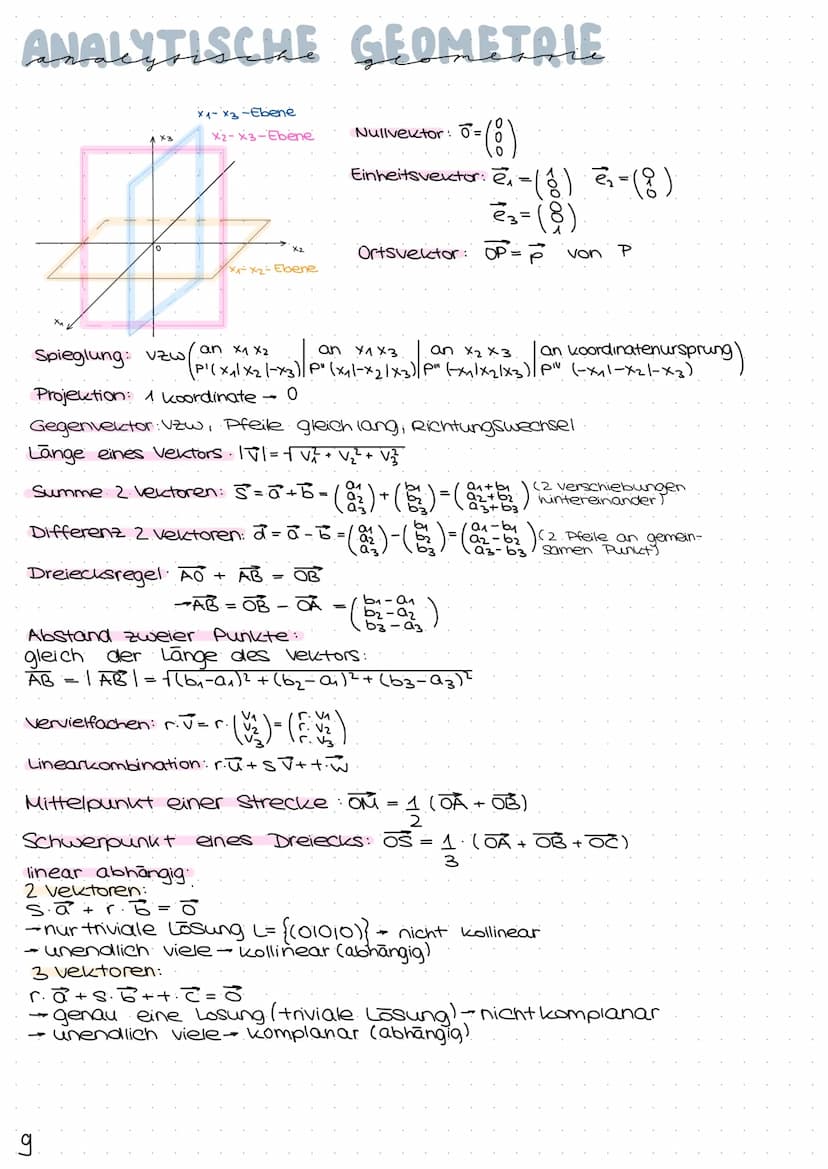 ANALYTISCHE GEOMETRIE
analytische geometrie
x₁-x₃-Ebene
x₃
x₂-x₃-Ebene
0
x₂
x₁-x₂-Ebene
x₁
Nullvektor: o⃗ = (0 0 0)
Einheitsvektor: e⃗₁ = (1 0 0) e⃗₂ = (0 1 0)
e⃗₃ = (0 0 1)
Ortsvektor: OP⃗ = p⃗ von P
Spieglung: VZW (an x₁ x₂ | an x₁ x₃ | an x₂ x₃ | an Koordinatenursprung)
P'(x₁|x₂|-x₃) | P''(x₁|-x₂|x₃) | P'''(-x₁|x₂|x₃) | P'ᵛ (-x₁|-x₂|-x₃)
Projektion: 1 Koordinate → 0
Gegenvektor: VZW, Pfeile gleich lang, Richtungswechsel
Länge eines Vektors: |v⃗| = √(v₁² + v₂² + v₃²)
Summe 2 Vektoren: s⃗ = a⃗ + b⃗ = (a₁ a₂ a₃) + (b₁ b₂ b₃) = (a₁+b₁ a₂+b₂ a₃+b₃) (2 Verschiebungen
hintereinander)
Differenz 2 Vektoren: d⃗ = a⃗ - b⃗ = (a₁ a₂ a₃) - (b₁ b₂ b₃) = (a₁-b₁ a₂-b₂ a₃-b₃) (2 Pfeile an gemein-
samen Punkt)
Dreiecksregel: AO⃗ + AB⃗ = OB⃗
→ AB⃗ = OB⃗ - OA⃗ = (b₁-a₁ b₂-a₂ b₃-a₃)
Abstand zweier Punkte:
gleich der Länge des Vektors:
A̅B̅ = |AB⃗| = √((b₁-a₁)² + (b₂-a₁)² + (b₃-a₃)²)
Vervielfachen: r·v⃗ = r·(v₁ v₂ v₃) = (r·v₁ r·v₂ r·v₃)
Linearkombination: r·u⃗ + s v⃗ + t·w⃗
Mittelpunkt einer Strecke: OM⃗ = 1/2 (OA⃗ + OB⃗)
Schwerpunkt eines Dreiecks: OS⃗ = 1/3 · (OA⃗ + OB⃗ + OC⃗)
linear abhängig:
2 Vektoren:
s·a⃗ + r·b⃗ = o⃗
→ nur triviale Lösung L= {(0|0|0)} → nicht kollinear
→ unendlich viele → kollinear (abhängig)
3 Vektoren:
r·a⃗ + s·b⃗ + t·c⃗ = o⃗
→ genau eine Lösung (triviale Lösung) → nicht komplanar
→ unendlich viele → komplanar (abhängig)
9